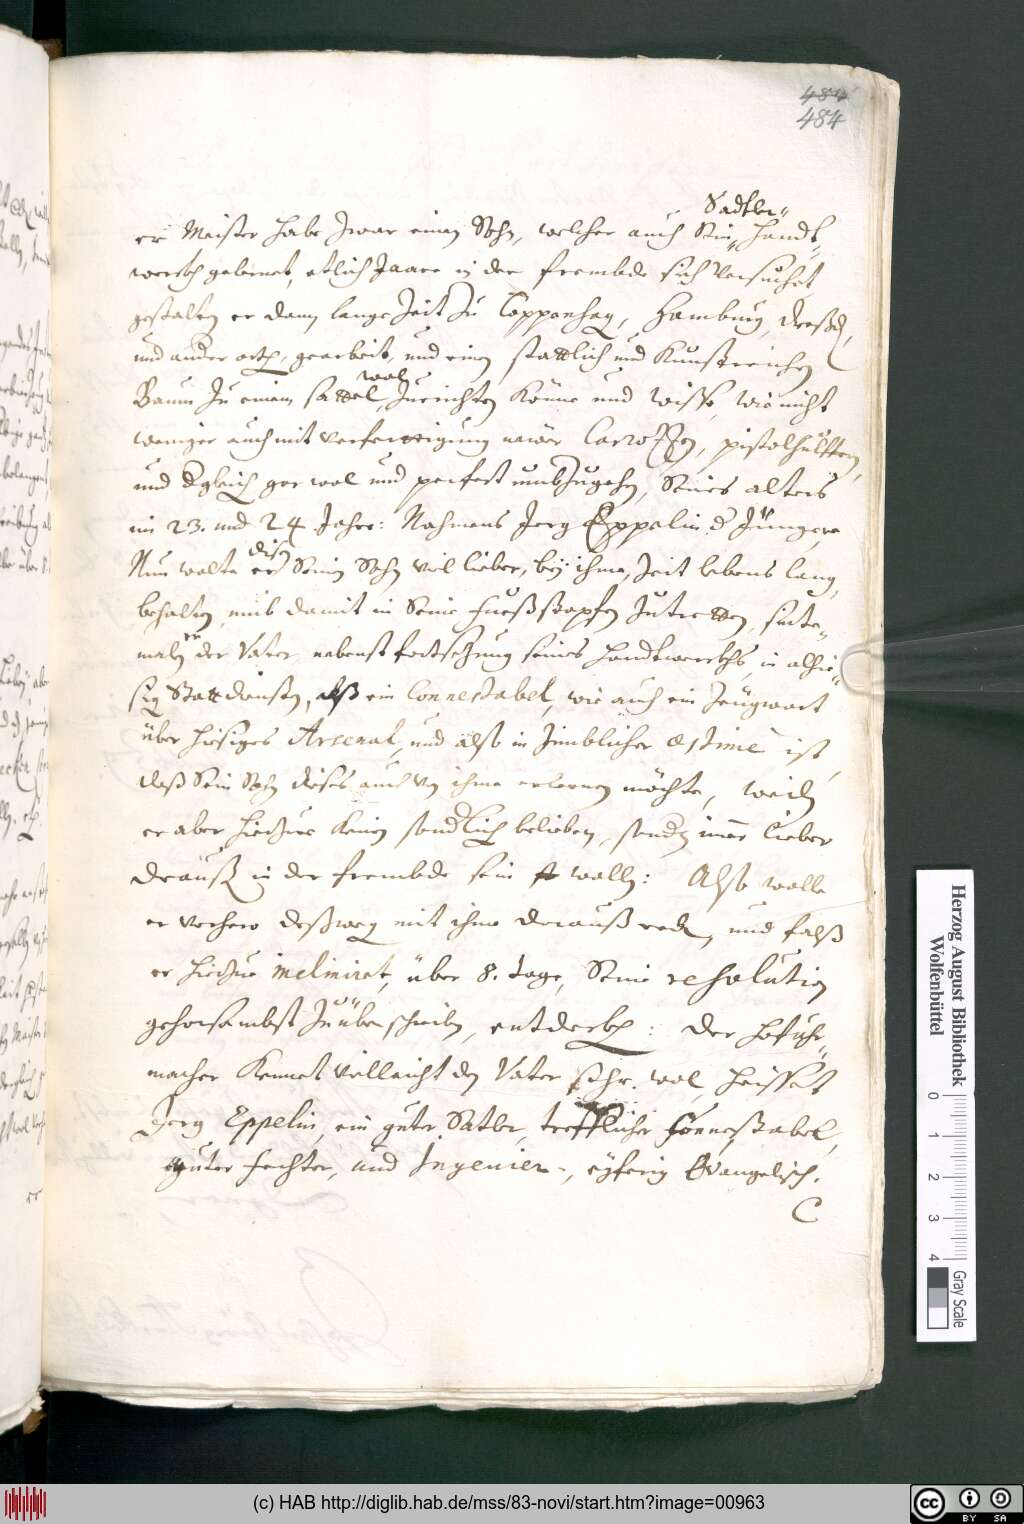 484
484
Sadtler„
er Meister habe zwar einen Sohn, welcher auch Sein„ Handt„
werckh gelernet, etlich Jaare in der frembde sich versuchet,
gestalten er dann lange Zeit zu Coppenhag, Hamburg, Dreßd,
und ander orth, gearbeit, und einen stattlich und Kunstreichen
Baum zu einem sattel, wol zurichten könne und wisse, wie nicht
weniger auch mit verfertigung neüer Carrozzen, pistolhülfften,
und dgleich gar wol und perfect umbzugehen, Seines alters
im 23. und 24 Jahre: Nahmens Jerg Eppelin d Jüngere
Nun wolte er disen Seinen Sohn viel lieber, bey ihme, Zeit lebens lang,
behalten, umb damit in Seine fueßstapfen zutretten, sinte„
maln er der Vater, nebenst fortsezung seines Handtwerckhs, in alhie„
sig Statt diensten, alß ein Connestabel, wie auch ein Zeügwart
über hiesiges Arsenal, und also in zimblicher estime ist,
daß Sein Sohn dieses auch von ihme erlernen möchte, weiln
er aber hierzue keinen sondlich belieben, sondn immer lieber
drauß in der frembde sein wolle: Also wolle
er vorhero deßweg mit ihme darauß reden, und falß
er hierzue incliniret, über 8. tage, Seine resolution
gehorsambst zuüberschreiben, entdeckh: Der Hofuhr„
macher kennet villeicht den Vater sehr wol, heisset
Jerg Eppelin, ein guter Satler, trefflicher Connestabel,
guter fechter, und Ingenier, eyferig Evangelisch.
C
Herzog August Bibliothek
Wolfenbüttel
0 1 2 3 4
Gray Scale
(c) HAB http://diglib.hab.de/mss/83-novi/start.htm?image=00963
CC BY SA